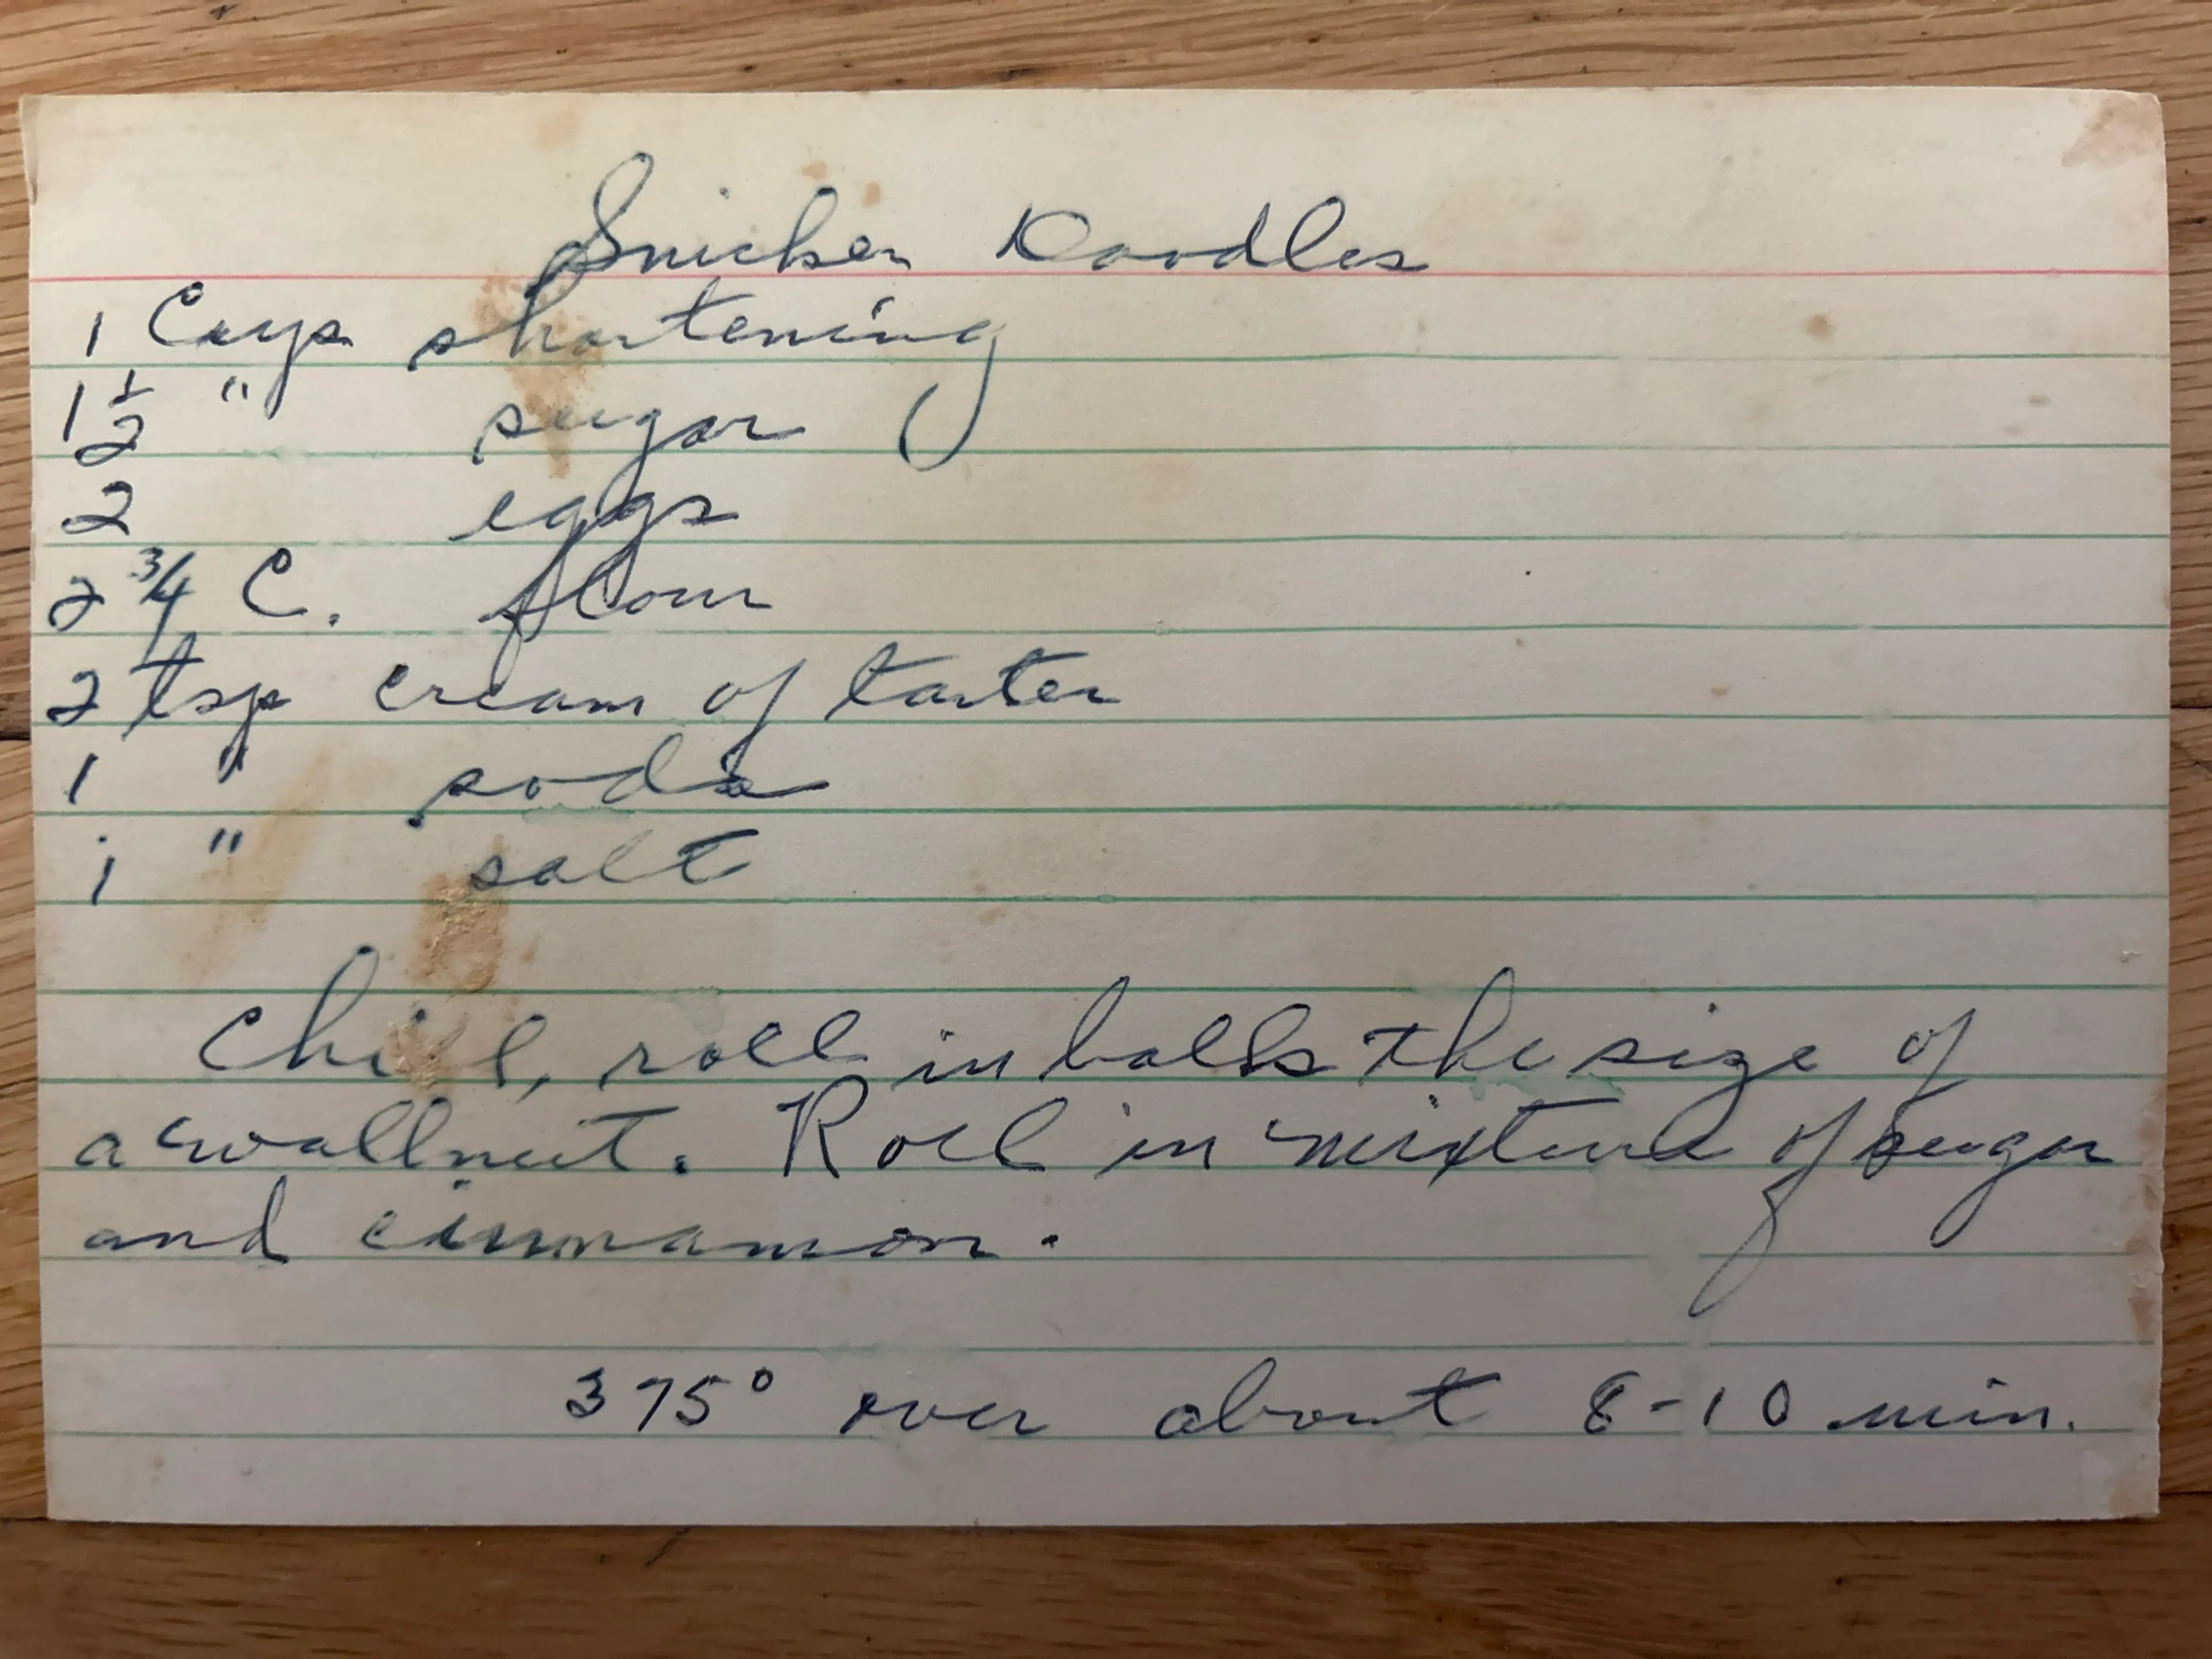 Snicker Doodles
1 Cups shortening
1 1/2 " sugar
2 eggs
2 3/4 C. flour
2 tsp cream of tarter
1 " soda
1 " salt
Chill, roll in balls the size of
a wallnut. Roll in mixture of sugar
and cinnamon.
375° over about 8-10 min.